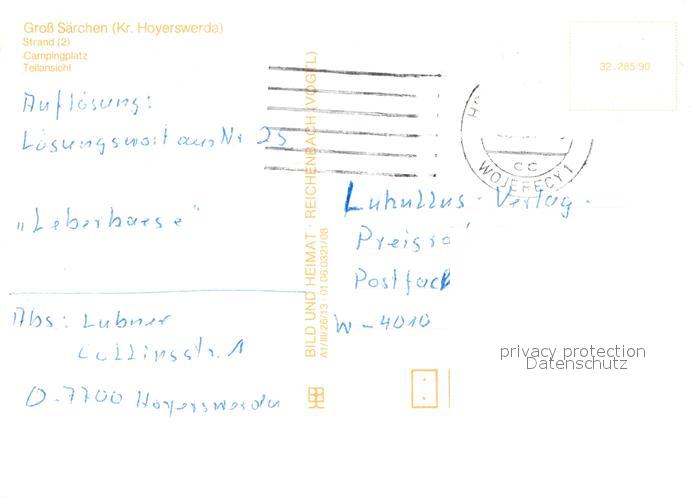 Groß Särchen (Kr. Hoyerswerda)
Strand (2)
Campingplatz
Teilansicht
32.285/90
Auflösung:
Lösungswort aus Nr 25
"Leberkaese"
Abs: Lubner
Collinsstr. 1
O-7700 Hoyerswerda
BILD UND HEIMAT · REICHENBACH (VOGTL)
A1/III/26/13 · 01 06 0321/08
WOJERECY 1
cc
Lukullus-Verlag
Postfach
W-4010
privacy protection
Datenschutz